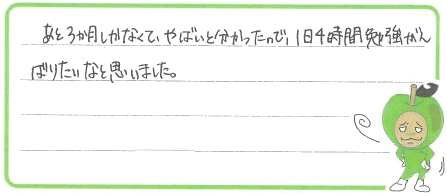 あと3か月しかなくて、やばいと分かったので、1日4時間勉強がん
ばりたいなと思いました。